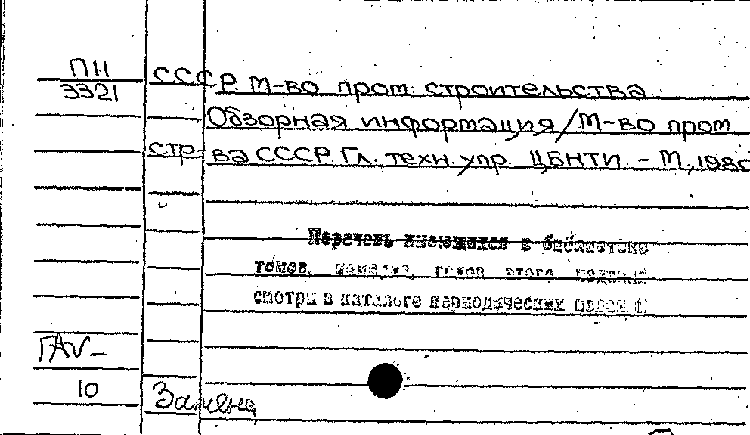 П11
3321
СССР. М-во пром. строительства
Обзорная информация/М-во пром
стр-ва СССР. Гл. техн. упр. ЦБНТИ. - М., 198
Перечень имеющихся в библиотеке
томов, номеров, годов этого издания
смотри в каталоге периодических
10
Замена